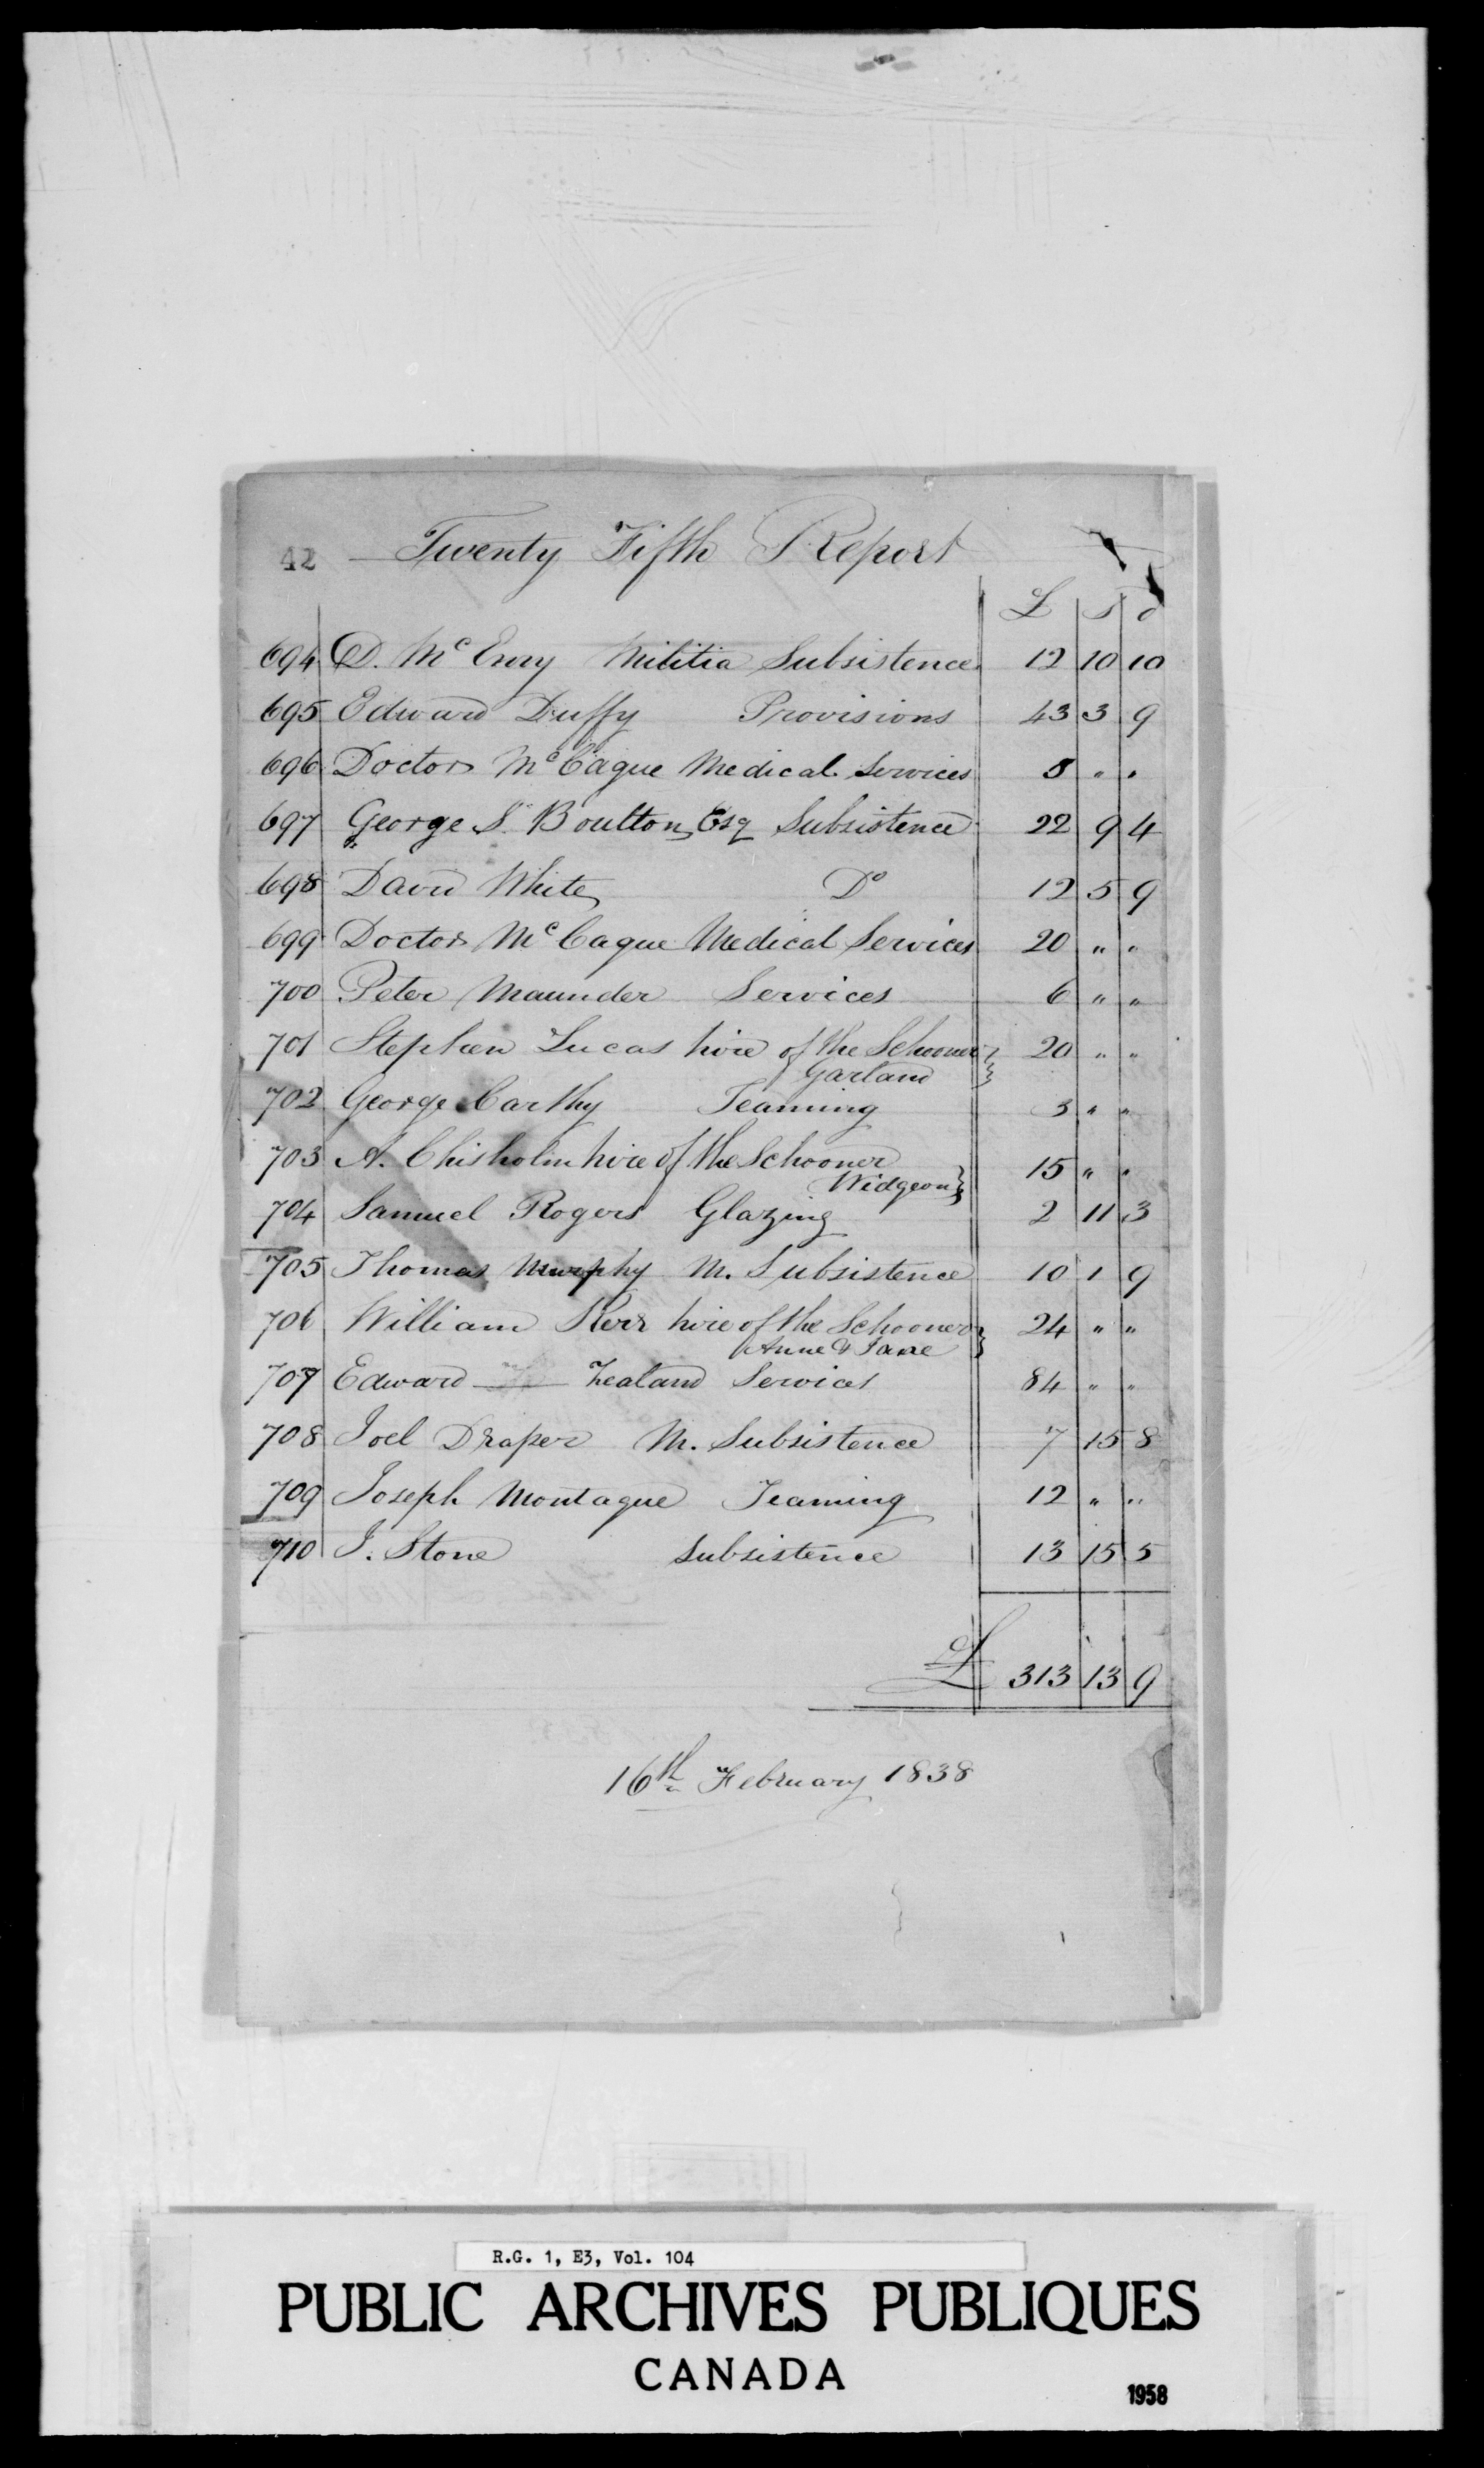 42 Twenty Fifth Report
£ s d
694 D. McEvoy Militia Subsistence 12 10 10
695 Edward Duffy Provisions 43 3 9
696 Doctor McCague Medical Services 5 " "
697 George S. Boulton Esq Subsistence 22 9 4
698 David White Do 12 5 9
699 Doctor McCague Medical Services 20 " "
700 Peter Maunder Services 6 " "
701 Stephen Lucas hire of the Schooner 20 " "
Garland
702 George Carthy Teaming 3 " "
703 A. Chisholm hire of the Schooner
Widgeon 15 " "
704 Samuel Rogers Glazing 2 11 3
705 Thomas Murphy M. Subsistence 10 1 9
706 William Kerr hire of the Schooner 24 " "
Anne & Jane
707 Edward Zealand Services 84 " "
708 Joel Draper M. Subsistence 7 15 8
709 Joseph Montague Teaming 12 " "
710 J. Stone Subsistence 13 15 5
£ 313 13 9
16th February 1838
R.G. 1, E3, Vol. 104
PUBLIC ARCHIVES PUBLIQUES
CANADA
1958